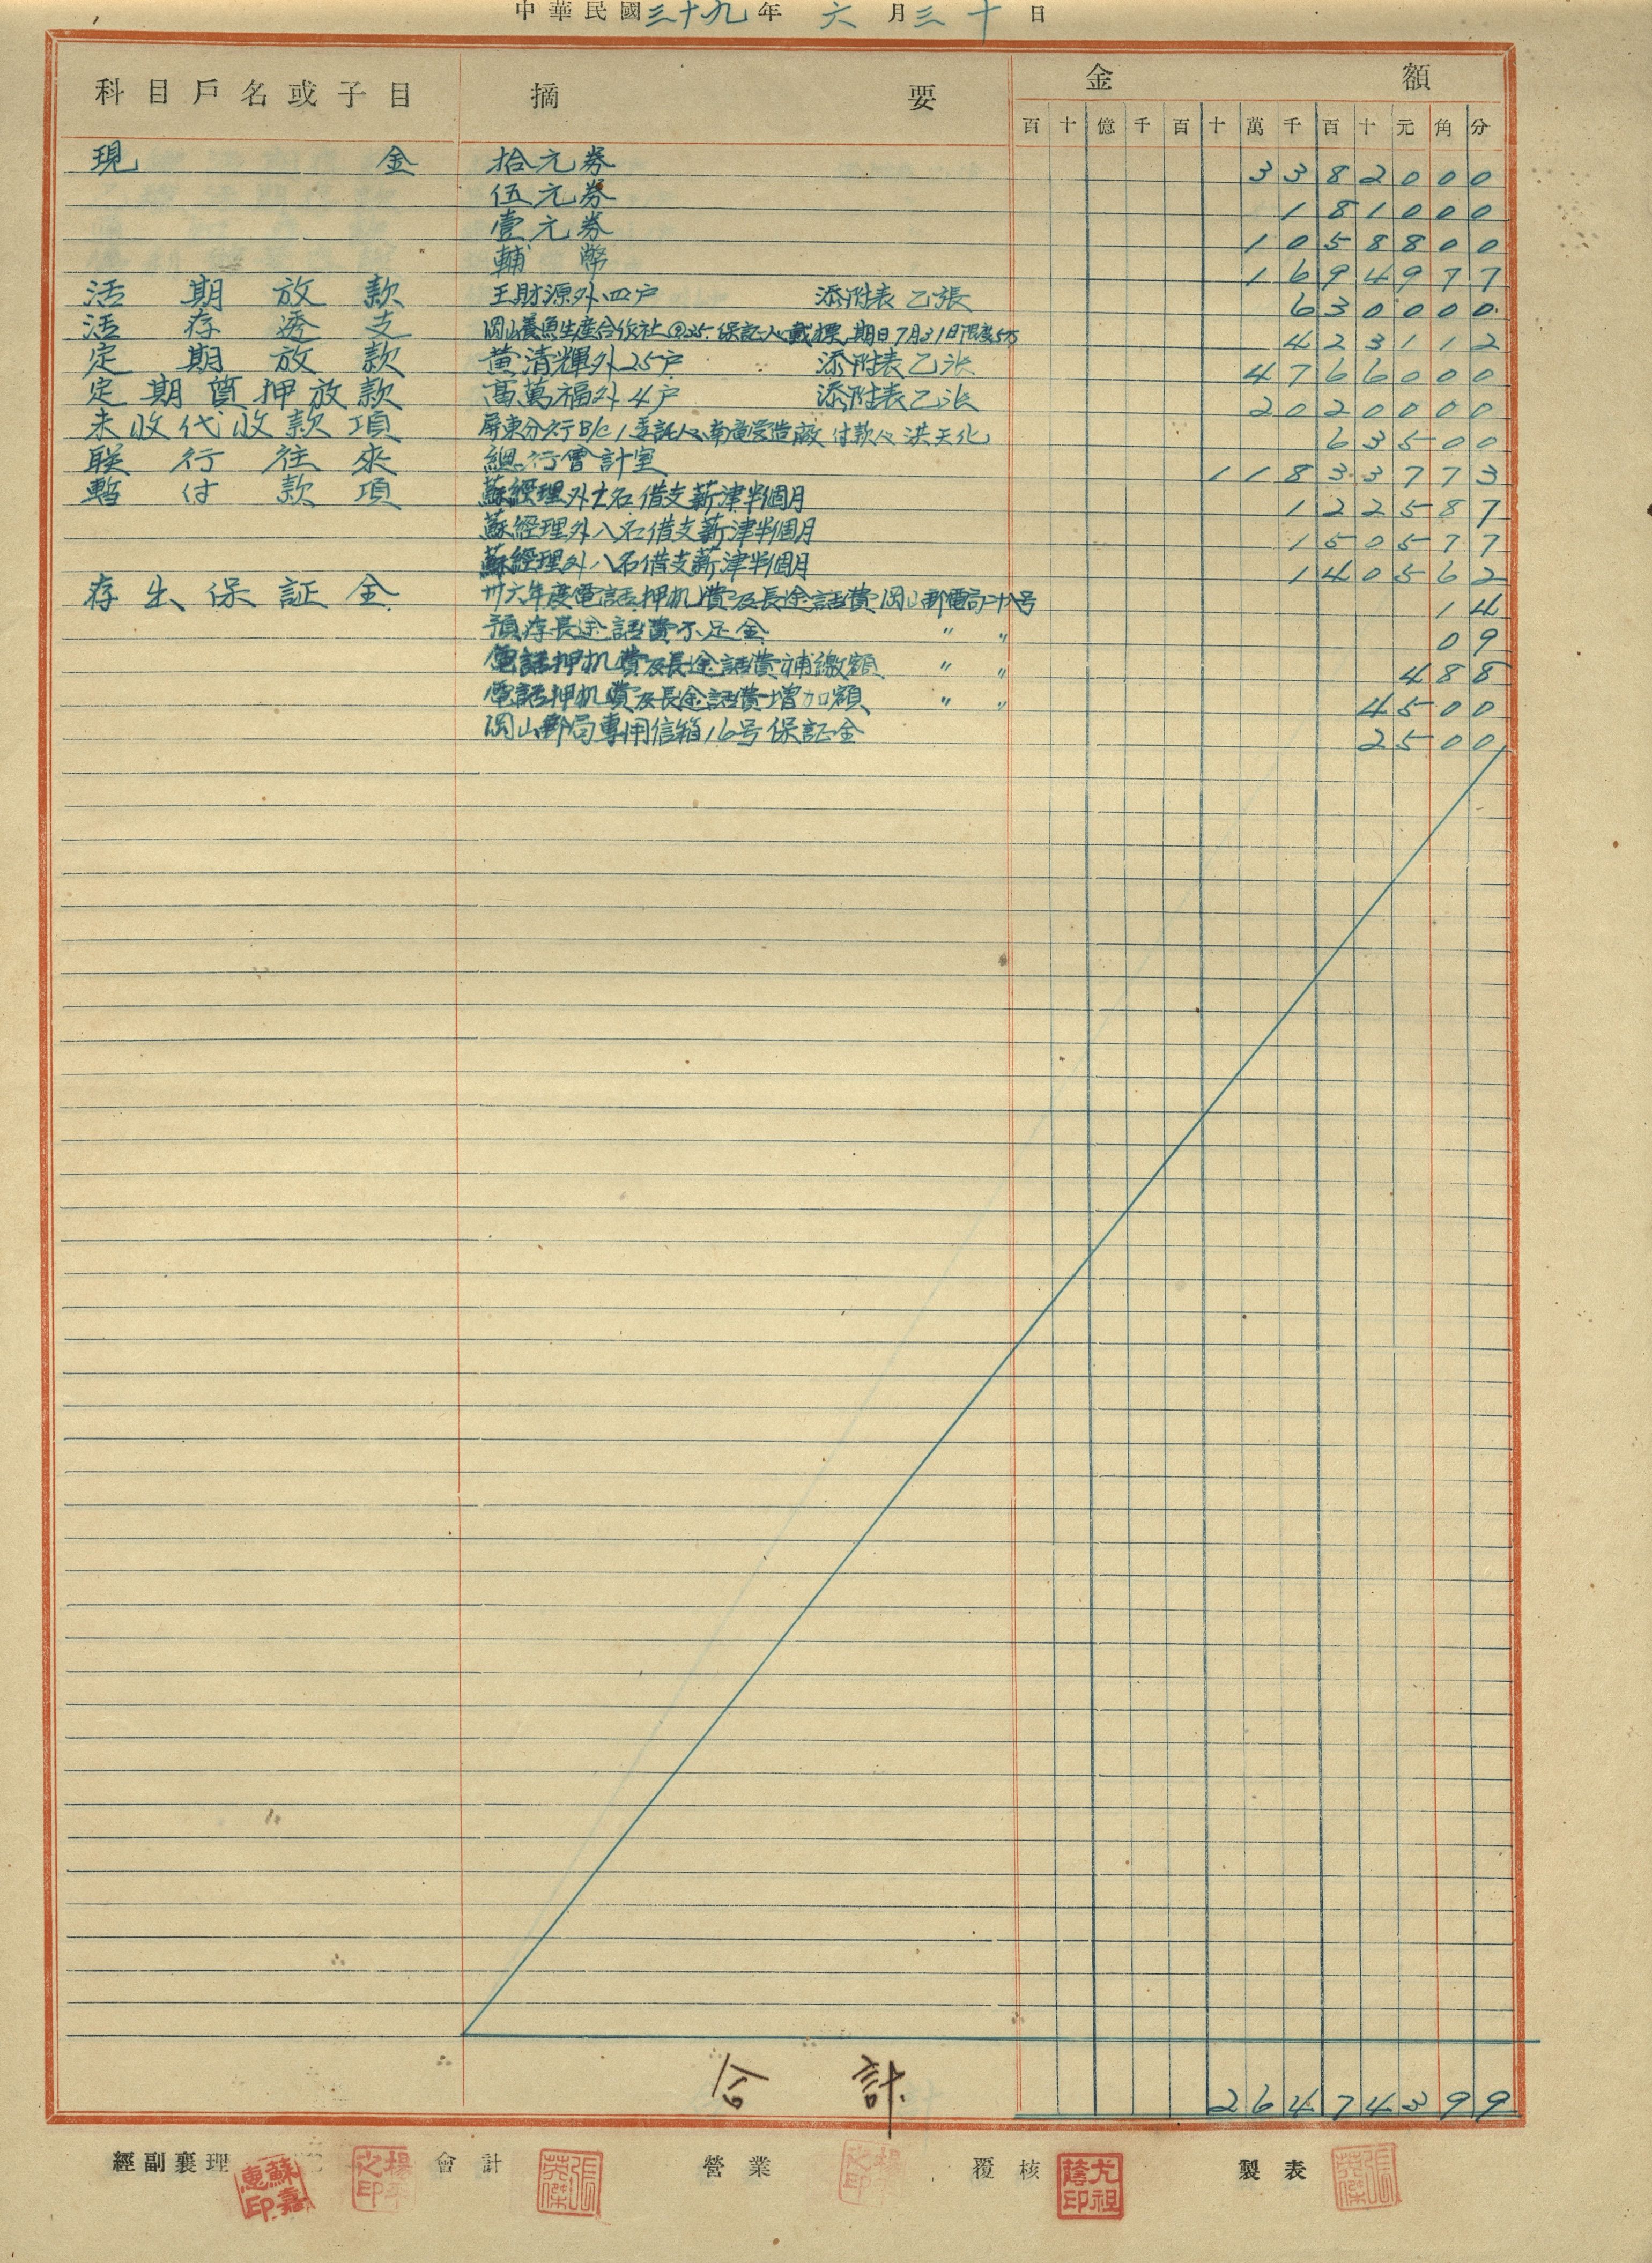 中華民國三十九年 六 月 三十 日
科目戶名或子目 摘 要 金 額
百 十 億 千 百 十 萬 千 百 十 元 角 分
現 金 拾元券 3382000
伍元券 181000
壹元券 1058800
輔幣 1694977
活期放款 王財源外四户 添附表乙張 630000
活存透支 岡山養魚生產合作社 @35. 保証人 戴標 期日7月31日限度5万 423112
定期放款 黄清輝外25户 添附表乙张 4766000
定期質押放款 萬福外4户 添附表乙张 2020000
未收代收款項 屏東分行B/C 1 委託人 南 營造廠 付款人 洪天化 63500
联行往來 總行會計室 11833773
暫付款項 蘇經理外七名借支薪津半個月 122587
蘇經理外八名借支薪津半個月 150577
蘇經理外八名借支薪津半個月 140562
存出保証金 卅六年度電話押机費及長途話費 岡山郵電局 号 14
預存長途話費不足金 〃 〃 09
電話押机費及長途話費補繳額 〃 〃 488
電話押机費及長途話費增加額 〃 〃 4500
岡山郵局專用信箱16号保証金 2500
合 計 26474399
經副襄理 蘇嘉惠印 會計 張英傑 營業 覆核 尤祖蔭印 製表 張英傑